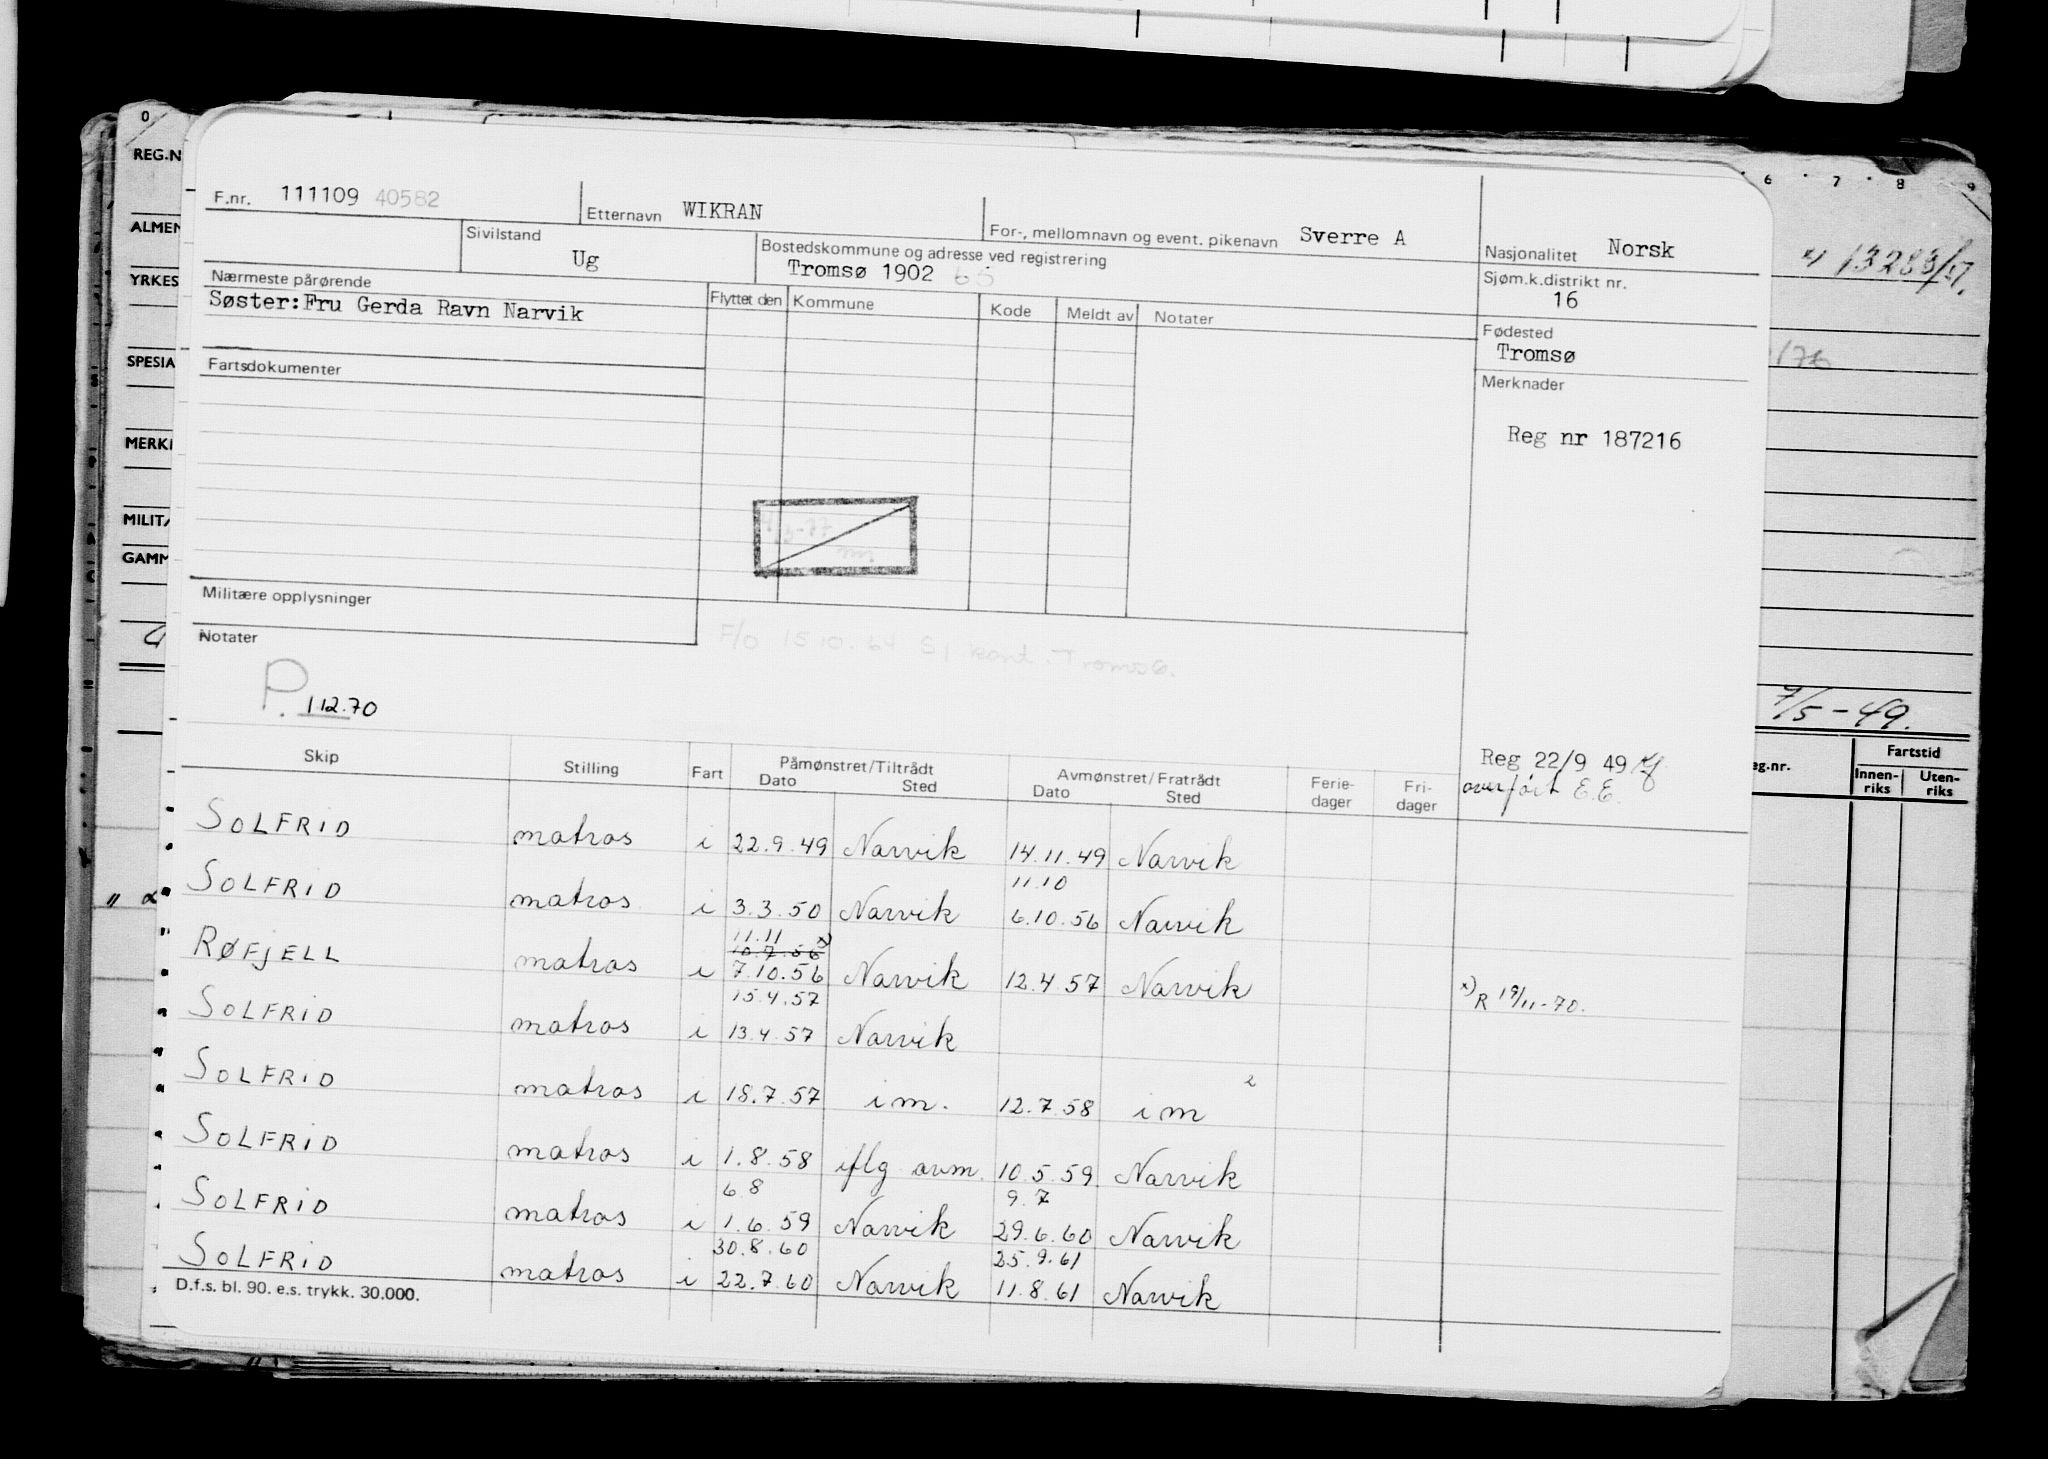 0
REG.N
ALMEN
YRKES
SPESIA
MERKI
MILITA
GAMM
F.nr. 111109 40582
Etternavn WIKRAN
For-, mellomnavn og event. pikenavn Sverre A
Nasjonalitet Norsk
Sivilstand
Ug
Bostedskommune og adresse ved registrering
Tromsø 1902
Sjøm.k.distrikt nr.
16
Nærmeste pårørende
Søster:Fru Gerda Ravn Narvik
Flyttet den Kommune Kode Meldt av Notater
Fødested
Tromsø
Fartsdokumenter
Merknader
Reg nr 187216
Militære opplysninger
Notater
F/o 15.10.64 Sj kont. Tromsø.
P. 1 12.70
Reg 22/9 49
overført E.E.
Skip Stilling Fart Påmønstret/Tiltrådt Dato Sted Avmønstret/Fratrådt Dato Sted Ferie-dager Fri-dager
SOLFRID matros i 22.9.49 Narvik 14.11.49 Narvik
11.10
SOLFRID matros i 3.3.50 Narvik 6.10.56 Narvik
11.11 x)
10.7.56
RØFJELL matros i 7.10.56 Narvik 12.4.57 Narvik x) R 19/11-70.
15.4.57
SOLFRID matros i 13.4.57 Narvik
SOLFRID matros i 18.7.57 im. 12.7.58 im
SOLFRID matros i 1.8.58 iflg avm. 10.5.59 Narvik
6.8 9.7
SOLFRID matros i 1.6.59 Narvik 29.6.60 Narvik
30.8.60 25.9.61
SOLFRID matros i 22.7.60 Narvik 11.8.61 Narvik
D.f.s. bl. 90. e.s. trykk. 30.000.
6 7 8 9
7/5-49.
eg.nr.
Fartstid
Innen-riks Uten-riks